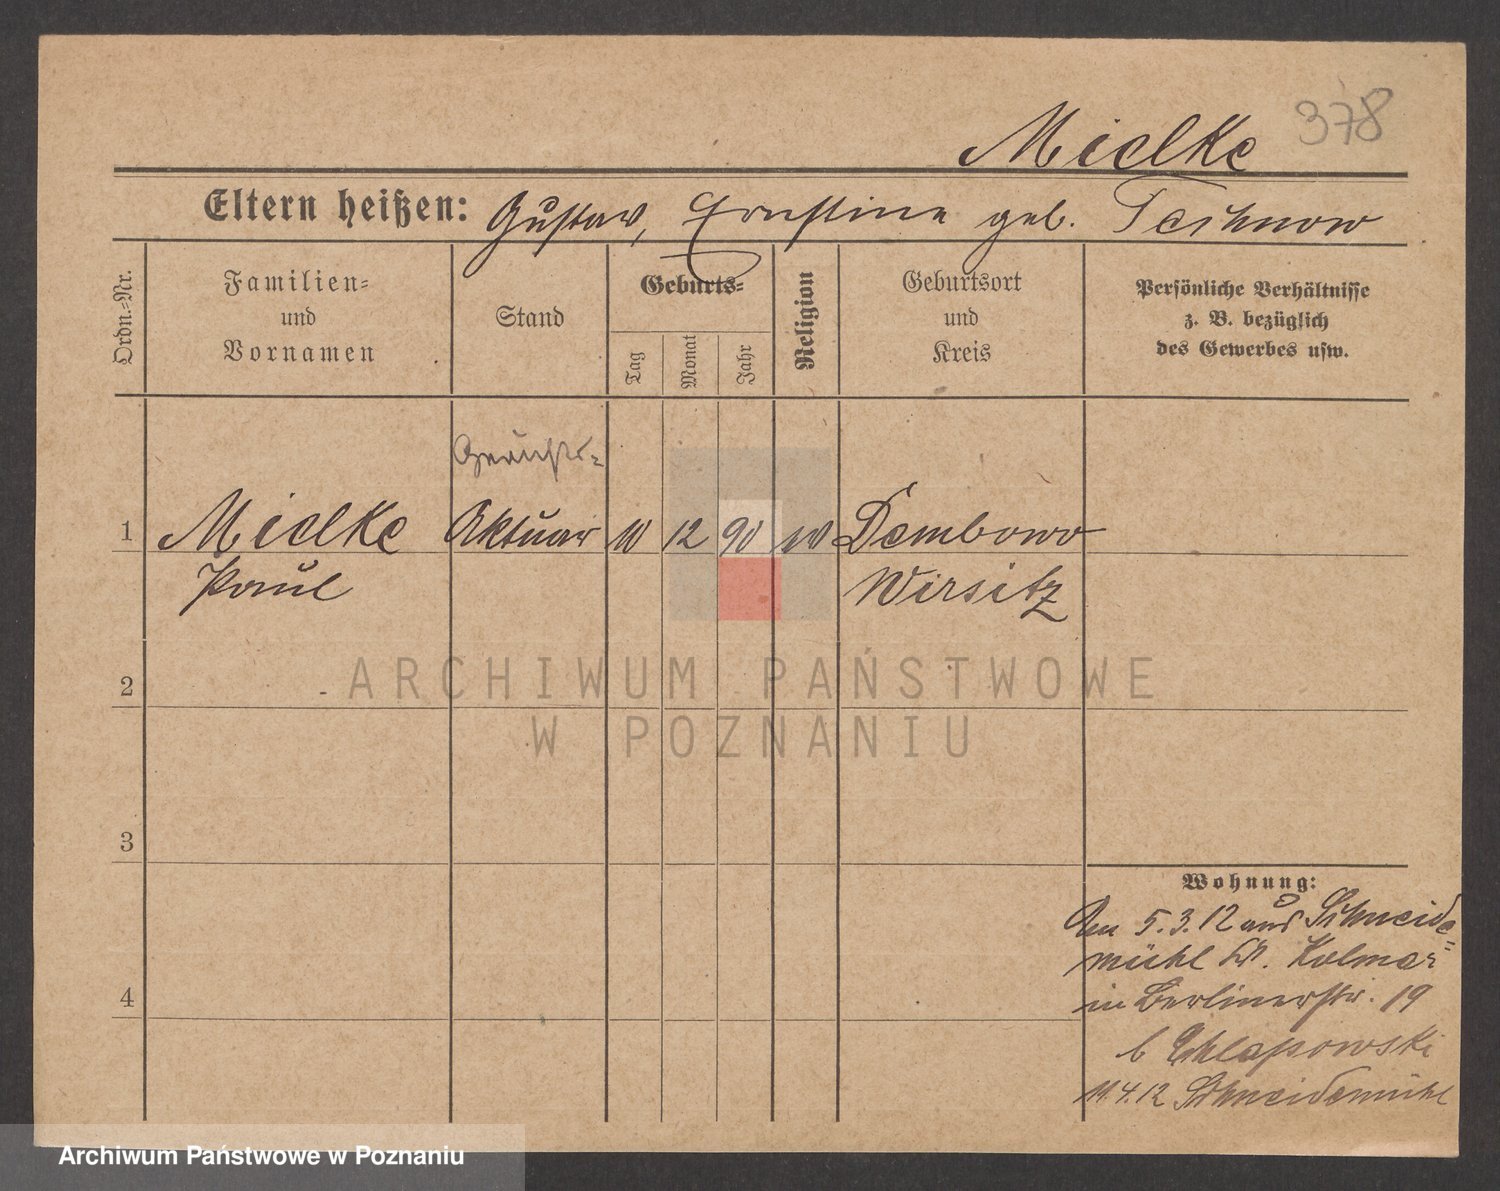 378
Mielke
Eltern heißen: Gustav, Ernstine geb. Teschnow
Ordn.-Nr.
Familien- und Vornamen
Stand
Geburts-
Tag
Monat
Jahr
Religion
Geburtsort und Kreis
Persönliche Verhältnisse
z. B. bezüglich
des Gewerbes usw.
Gerichts-
1 Mielke Aktuar 10 12 90 Dembowo
Paul Wirsitz
2
3
4
Wohnung:
Am 5.3.12 aus Schneide-
mühl Kr. Kolmar
in Berlinerstr. 19
b Chlapowski
11.4.12 Schneidemühl
ARCHIWUM PAŃSTWOWE
W POZNANIU
Archiwum Państwowe w Poznaniu